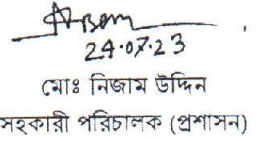 24.07.23
মোঃ নিজাম উদ্দিন
সহকারী পরিচালক (প্রশাসন)